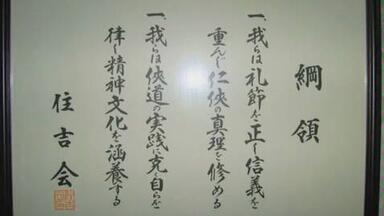 綱領
一、我らは礼節を正し信義を
重んじ仁侠の真理を修める
一、我らは侠道の実践に克く自らを
律し精神文化を涵養する
住吉会